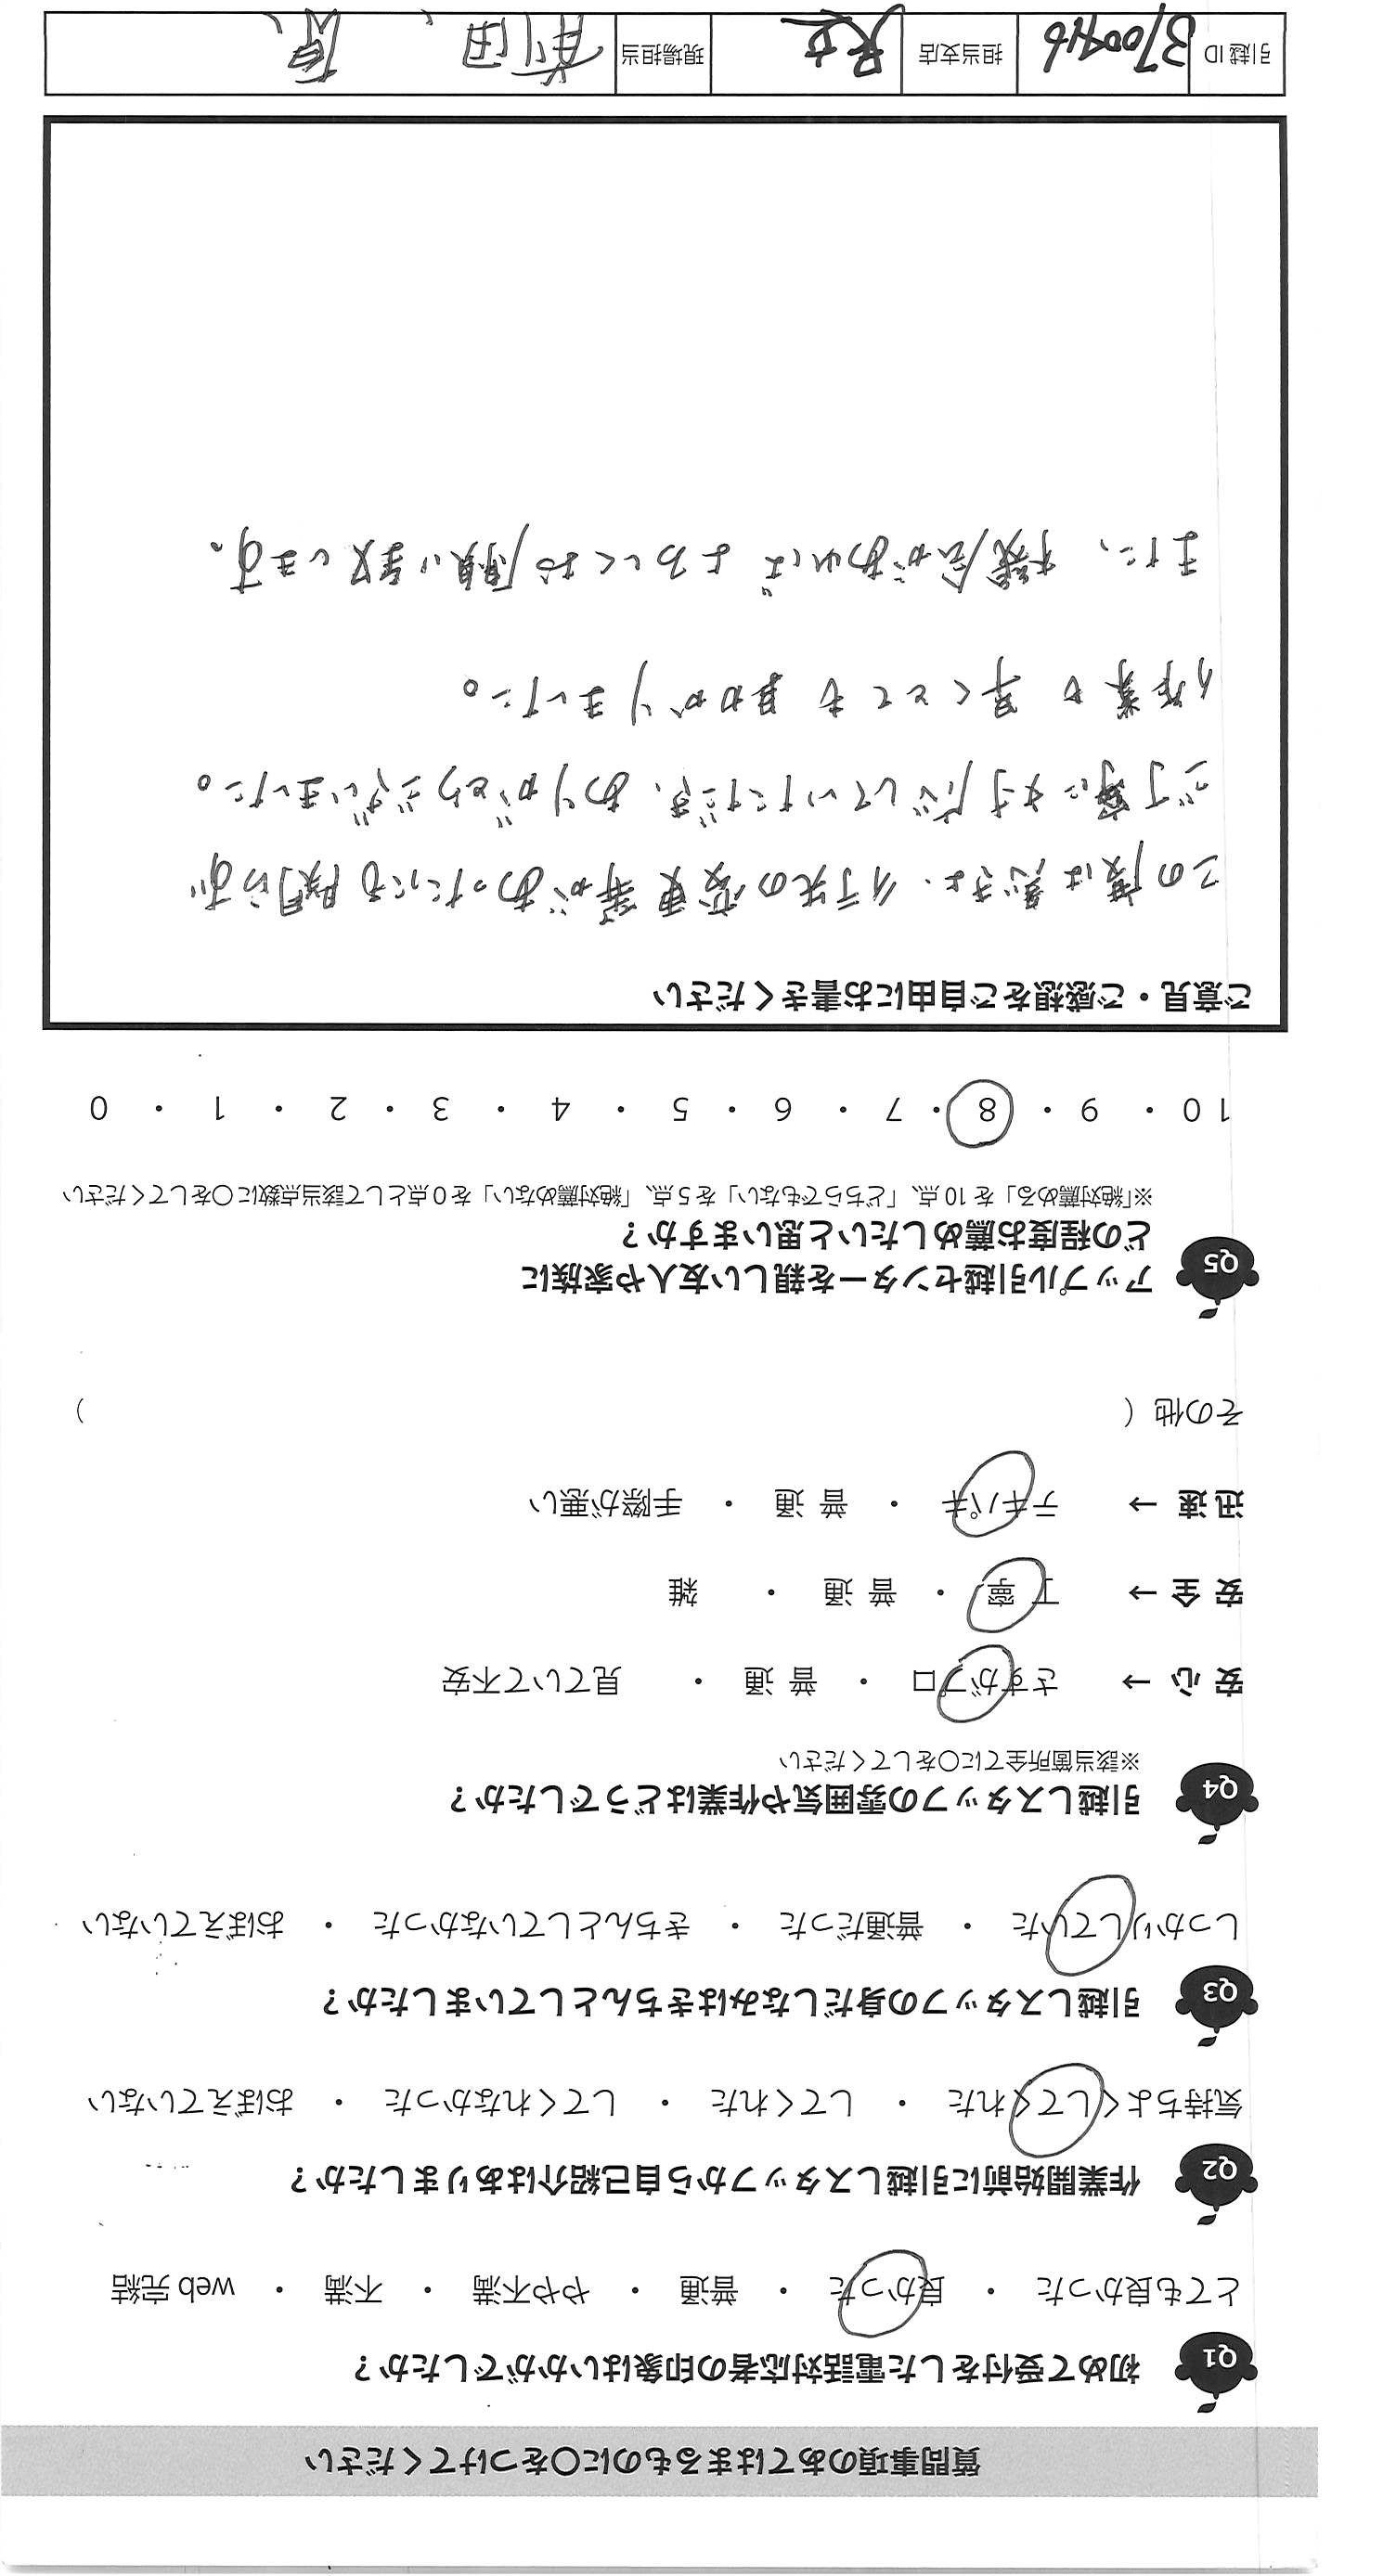 質問事項のあてはまるものに○をつけてください
Q1 初めて受付をした電話対応者の印象はいかがでしたか？
とても良かった ・ 良かった ・ 普通 ・ やや不満 ・ 不満 ・ web 完結
Q2 作業開始前に引越しスタッフから自己紹介はありましたか？
気持ちよくしてくれた ・ してくれた ・ してくれなかった ・ おぼえていない
Q3 引越しスタッフの身だしなみはきちんとしていましたか？
しっかりしていた ・ 普通だった ・ きちんとしていなかった ・ おぼえていない
Q4 引越しスタッフの雰囲気や作業はどうでしたか？
※該当箇所全てに○をしてください
安 心 → さすがプロ ・ 普 通 ・ 見ていて不安
安 全 → 丁 寧 ・ 普 通 ・ 雑
迅 速 → テキパキ ・ 普 通 ・ 手際が悪い
その他（ ）
Q5 アップル引越センターを親しい友人や家族に
どの程度お薦めしたいと思いますか？
※「絶対薦める」を 10 点、「どちらでもない」を 5 点、「絶対薦めない」を 0 点として該当点数に○をしてください
10 ・ 9 ・ 8 ・ 7 ・ 6 ・ 5 ・ 4 ・ 3 ・ 2 ・ 1 ・ 0
ご意見・ご感想をご自由にお書きください
この度は急きょ、行先の変更等があったにも関らず
ご丁寧に対応していただき、ありがとうございました。
作業も早くとても助かりました。
また、機会があればよろしくお願い致します。
引越 ID 担当支店 現場担当 前田、原